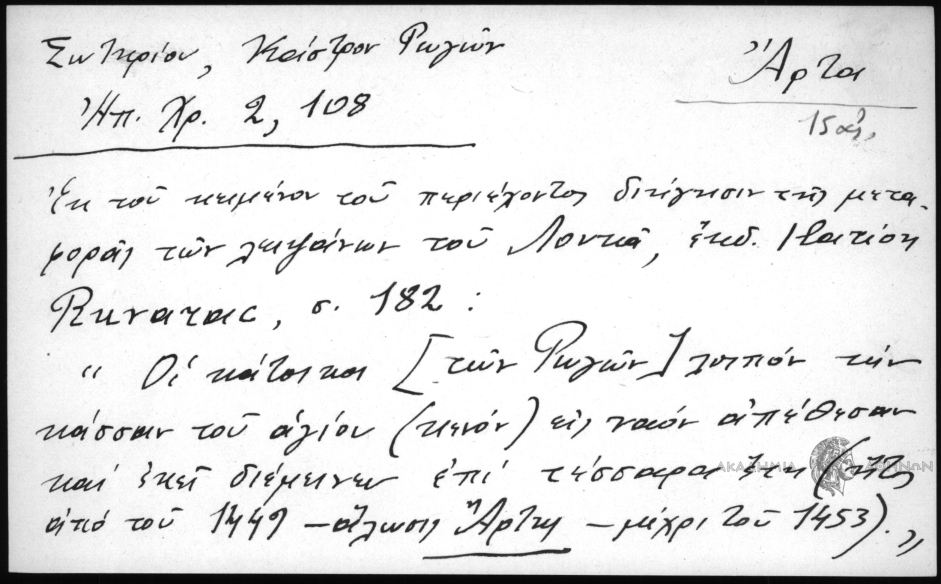 Σωτηρίου, Κάστρον Ρωγῶν
Ἄρτα
Ἠπ. Χρ. 2, 108
15 αἰ.
Ἐκ τοῦ κειμένου τοῦ περιέχοντος διήγησιν τῆς μετα-
φορᾶς τῶν λειψάνων τοῦ Λουκᾶ, ἔκδ.
σ. 182 :
" Οἱ κάτοικοι [τῶν Ρωγῶν] λοιπόν τήν
κάσσαν τοῦ ἁγίου (κενόν) εἰς ναόν ἀπέθεσαν
καί ἐκεῖ διέμεινεν ἐπί τέσσαρα ἔτη (ἤτοι
ΑΚΑΔΗΜΙΑ ΑΘΗΝΩΝ
ἀπό τοῦ 1449 – ἅλωσις Ἄρτης – μέχρι τοῦ 1453). "